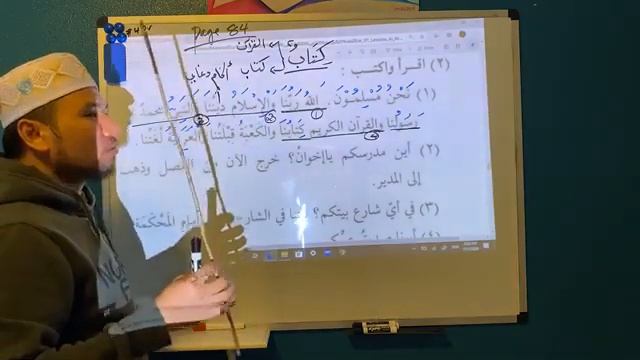 Page 84
في القرآن
كِتَابٌ كتاب
(٢) اقرأ واكتب :
(١) نَحْنُ مُسْلِمُوْنَ. اللهُ رَبُّنَا وَالْإِسْلَامُ دِيْنُنَا وَالنَّبِيُّ مُحَمَّدٌ
رَسُوْلُنَا وَالقرآن الكريم كِتَابُنَا وَالكَعْبَةُ قِبْلَتُنَا وَالْعَرَبِيَّةُ لُغَتُنَا.
(٢) أين مدرسكم ياإخوانُ؟ خرج الآن من الفصل وذهب
إلى المدير.
(٣) في أيِّ شارع بيتكم؟ في الشارع أمام المَحْكَمَة
(٤)